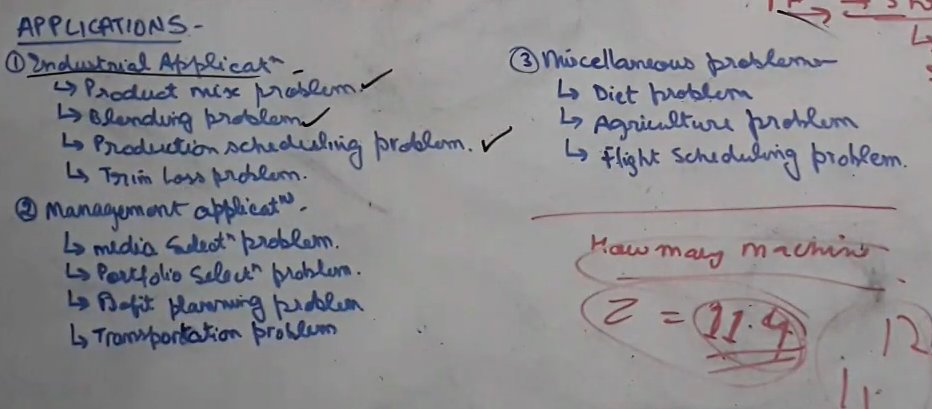 APPLICATIONS -
① Industrial Applicatⁿ -
↳ Product mix problem. ✓
↳ Blending problem ✓
↳ Production scheduling problem. ✓
↳ Trim Loss problem.
② Management applicatⁿ -
↳ media Selectⁿ problem.
↳ Portfolio Selectⁿ problem.
↳ Profit planning problem
↳ Transportation problem
③ Miscellaneous problem -
↳ Diet problem
↳ Agriculture problem
↳ flight scheduling problem.
How many machine
Z = 11.4
12